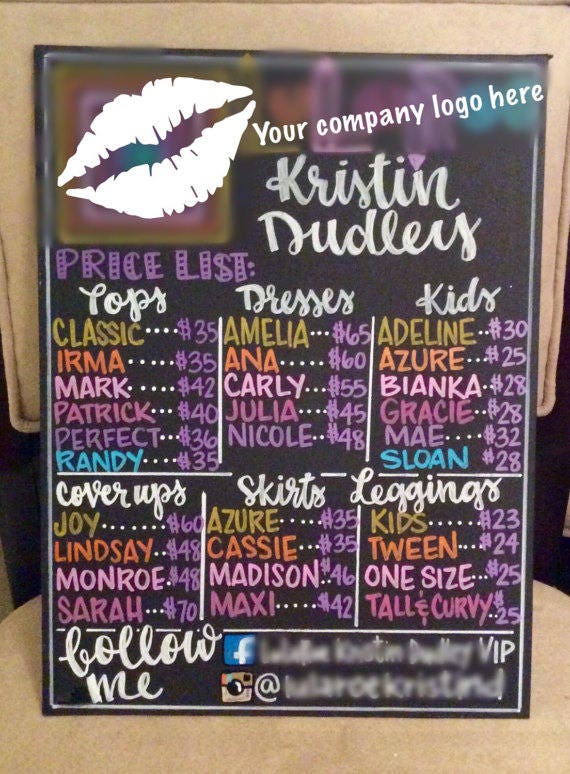 Your company logo here
Kristin
Dudley
PRICE LIST:
Tops
CLASSIC....$35
IRMA.....$35
MARK.....$42
PATRICK....$40
PERFECT...$36
RANDY....$35
Dresses
AMELIA...$65
ANA.....$60
CARLY...$55
JULIA....$45
NICOLE..$48
Kids
ADELINE..$30
AZURE...$25
BIANKA.$28
GRACIE.$28
MAE....$32
SLOAN $28
Cover ups
JOY......$60
LINDSAY..$48
MONROE..$48
SARAH...$70
Skirts
AZURE....$35
CASSIE....$35
MADISON.$46
MAXI.....$42
Leggings
KIDS.....$23
TWEEN...$24
ONE SIZE...$25
TALL & CURVY.$25
follow
me
f Kristin Dudley VIP
@